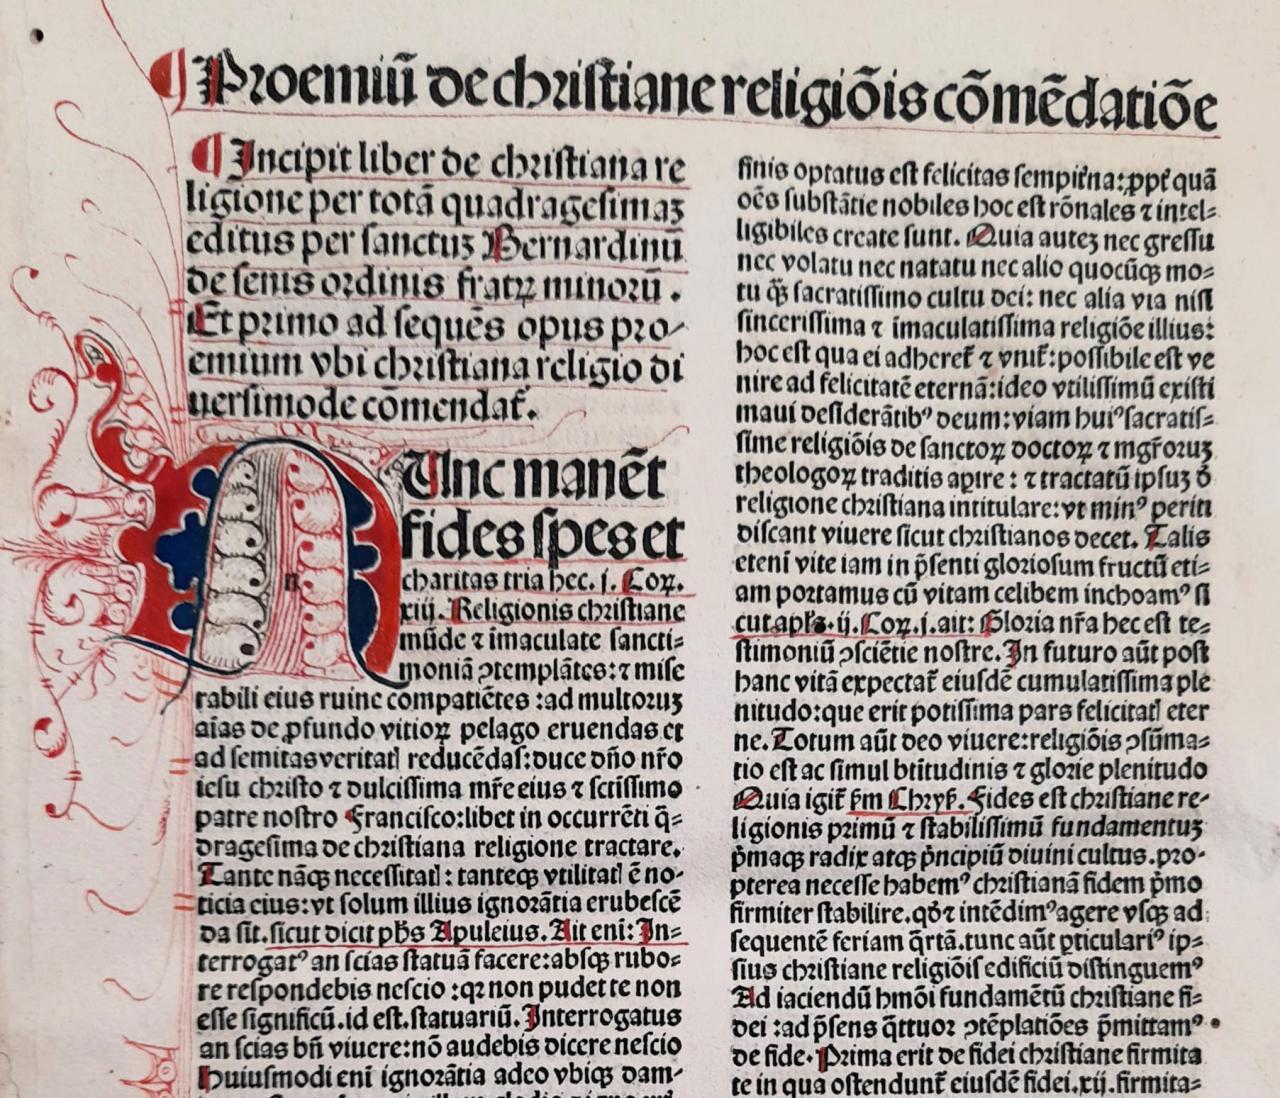 ¶ Proemiũ de christiane religiõis cõmẽdatiõe
¶ Incipit liber de christiana re
ligione per totã quadragesimaꝫ
editus per sanctuꝫ Bernardinũ
de senis ordinis fratꝝ minorũ .
Et primo ad sequẽs opus pro⸗
emium vbi christiana religio di
uersimode cõmendat᷑.
NUnc manẽt
fides spes et
charitas tria hec. j. Coꝝ.
xiij. Religionis christiane
mũde ⁊ ĩmaculate sancti⸗
moniã ꝯtemplãtes:⁊ mise
rabili eius ruine compatiẽtes :ad multoruꝫ
aĩas de ꝓfundo vitioꝝ pelago eruendas et
ad semitas veritatꝭ reducẽdas:duce dño nr̃o
iesu christo ⁊ dulcissima mr̃e eius ⁊ sctĩssimo
patre nostro Francisco:libet in occurrẽti q̃⸗
dragesima de christiana religione tractare.
Tante nãqꝫ necessitatꝭ: tanteqꝫ vtilitatꝭ ẽ no⸗
ticia eius:vt solum illius ignorãtia erubescẽ
da sit.sicut dicit ph̃s Apuleius. Ait enĩ: In⸗
terrogatꝰ an scias statuã facere:absqꝫ rubo⸗
re respondebis nescio :qꝛ non pudet te non
esse significũ.id est.statuariũ. Interrogatus
an scias bñ viuere:nõ audebis dicere nescio
Huiusmodi enĩ ignorãtia adeo vbiqꝫ dam⸗
finis optatus est felicitas sempit᷑na:ꝓpt᷑ quã
oẽs substãtie nobiles hoc est rõnales ⁊ intel⸗
ligibiles create sunt. Quia auteꝫ nec gressu
nec volatu nec natatu nec alio quocũqꝫ mo⸗
tu q̃ꝫ sacratissimo cultu dei: nec alia via nisi
sincerissima ⁊ ĩmaculatissima religiõe illius:
hoc est qua ei adheret᷑ ⁊ vnit᷑:possibile est ve
nire ad felicitatẽ eternã:ideo vtilissimũ existi
maui desiderãtibꝰ deum:viam huiꝰ sacratis⸗
sime religiõis de sanctoꝝ doctoꝝ ⁊ mgr̃oruꝫ
theologoꝝ traditis aꝑire : ⁊ tractatũ ipsuꝫ d̃
religione christiana intitulare:vt minꝰ periti
discant viuere sicut christianos decet. Talis
etenĩ vite iam in p̃senti gloriosum fructũ eti⸗
am portamus cũ vitam celibem inchoamꝰ si
cut apl̃s.ij. Coꝝ.j.ait: Gloria nr̃a hec est te⸗
stimoniũ ꝯsciẽtie nostre. In futuro aũt post
hanc vitã expectat᷑ eiusdẽ cumulatissima ple
nitudo:que erit potissima pars felicitatꝭ eter
ne. Totum aũt deo viuere:religiõis ꝯsũma⸗
tio est ac simul btĩtudinis ⁊ glorie plenitudo
Quia igit᷑ ẜm Chryẜ. Fides est christiane re⸗
ligionis primũ ⁊ stabilissimũ fundamentuꝫ
p̃maqꝫ radix atqꝫ p̃ncipiũ diuini cultus.pro⸗
pterea necesse habemꝰ christianã fidem p̃mo
firmiter stabilire.qđ ⁊ intẽdimꝰ agere vsqꝫ ad
sequentẽ feriam q̃rtã.tunc aũt ꝑticulariꝰ ip⸗
sius christiane religiõis edificiũ distinguemꝰ
Ad iaciendũ hmõi fundamẽtũ christiane fi⸗
dei :ad p̃sens q̃ttuor ꝯtẽplatiões p̃mittamꝰ
de fide. Prima erit de fidei christiane firmita
te in qua ostendunt᷑ eiusdẽ fidei.xij.firmita⸗